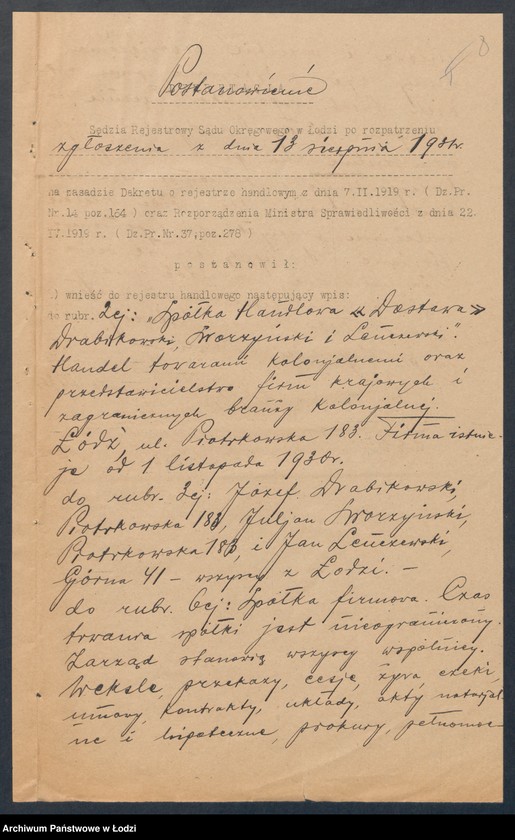 8
Postanowienie
Sędzia Rejestrowy Sądu Okręgowego w Łodzi po rozpatrzeniu
zgłoszenia z dnia 13 sierpnia 1931r.
na zasadzie Dekretu o rejestrze handlowym z dnia 7.II.1919 r ( Dz.Pr.
Nr.14 poz.164 ) oraz Rozporządzenia Ministra Sprawiedliwości z dnia 22.
IV.1919 r. ( Dz.Pr.Nr.37,poz.278 )
postanowił:
.) wnieść do rejestru handlowego następujący wpis:
do rubr. 2ej: „Spółka Handlowa « Dostawa »
Drabikowski, Skorzyński i Lenczewski".
Handel towarami kolonjalnemi oraz
przedstawicielstwo firm krajowych i
zagranicznych branży kolonjalnej.
Łódź, ul. Piotrkowska 183. Firma istnie-
je od 1 listopada 1930r.
do rubr. 3ej: Józef Drabikowski,
Piotrkowska 183, Juljan Skorzyński,
Piotrkowska 183, i Jan Lenczewski,
Górna 41 – wszyscy z Łodzi. –
do rubr. 6ej: Spółka firmowa. Czas
trwania spółki jest nieograniczony.
Zarząd stanowią wszyscy wspólnicy.
Weksle, przekazy, cesje, żyra, czeki,
umowy, kontrakty, układy, akty notarjal-
ne i hipoteczne, prokury, pełnomoc-
Archiwum Państwowe w Łodzi